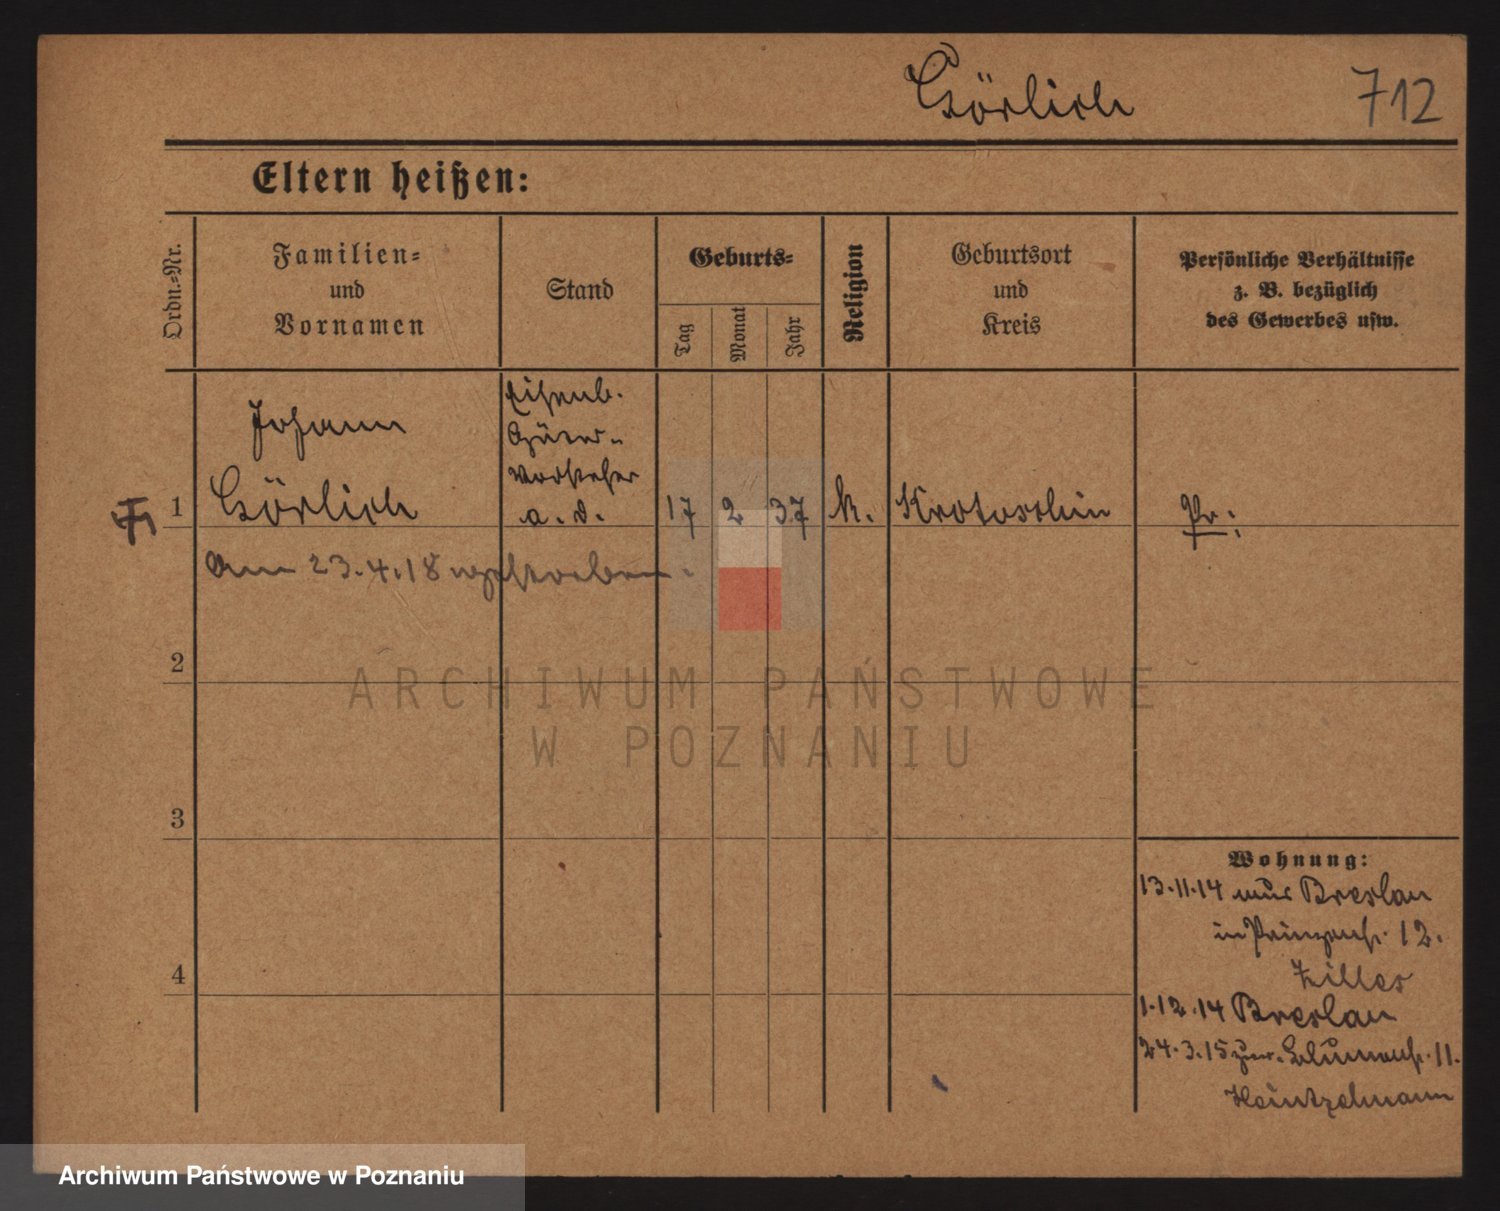 Görlich
712
Eltern heißen:
Ordn.-Nr.
Familien-
und
Vornamen
Stand
Geburts-
Tag
Monat
Jahr
Religion
Geburtsort
und
Kreis
Persönliche Verhältnisse
z. B. bezüglich
des Gewerbes usw.
Johann
Görlich
Eisenb.
Güter-
vorsteher
a. D.
1
17 2 37
k.
Krotoschin
Pr:
Am 23.4.18 verstorben.
2
ARCHIWUM PAŃSTWOWE
W POZNANIU
3
4
Wohnung:
13.11.14 aus Breslau
in Prinzenstr. 12.
Ziller
1.12.14 Breslau
24.3.15 zur. Blumenstr. 11.
Heintzelmann
Archiwum Państwowe w Poznaniu